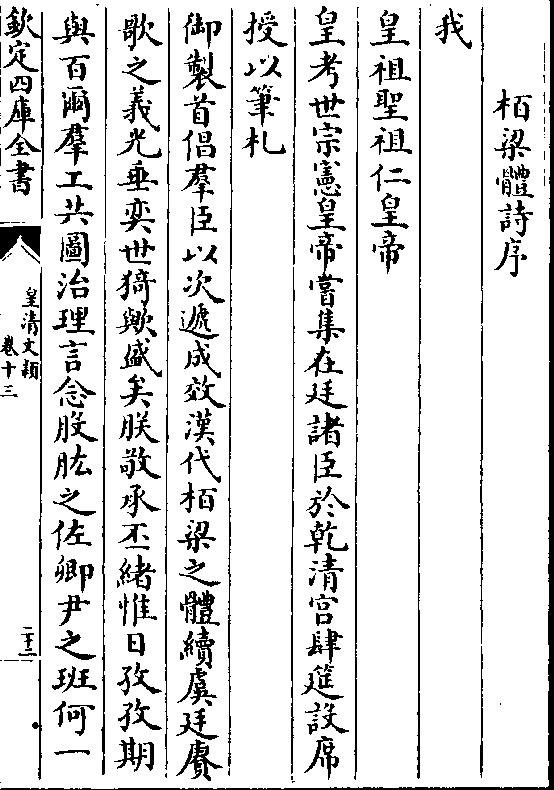 栢梁體詩序
我
皇祖聖祖仁皇帝
皇考世宗憲皇帝嘗集在廷諸臣於乾清宫肆筵設席
授以筆札
御製首倡羣臣以次遞成效漢代栢梁之體續虞廷賡
歌之義光垂奕世猗歟盛矣朕敬承丕緒惟日孜孜期
與百爾羣工共圖治理言念股肱之佐卿尹之班何一
欽定四庫全書
皇清文穎
卷十三
二十三